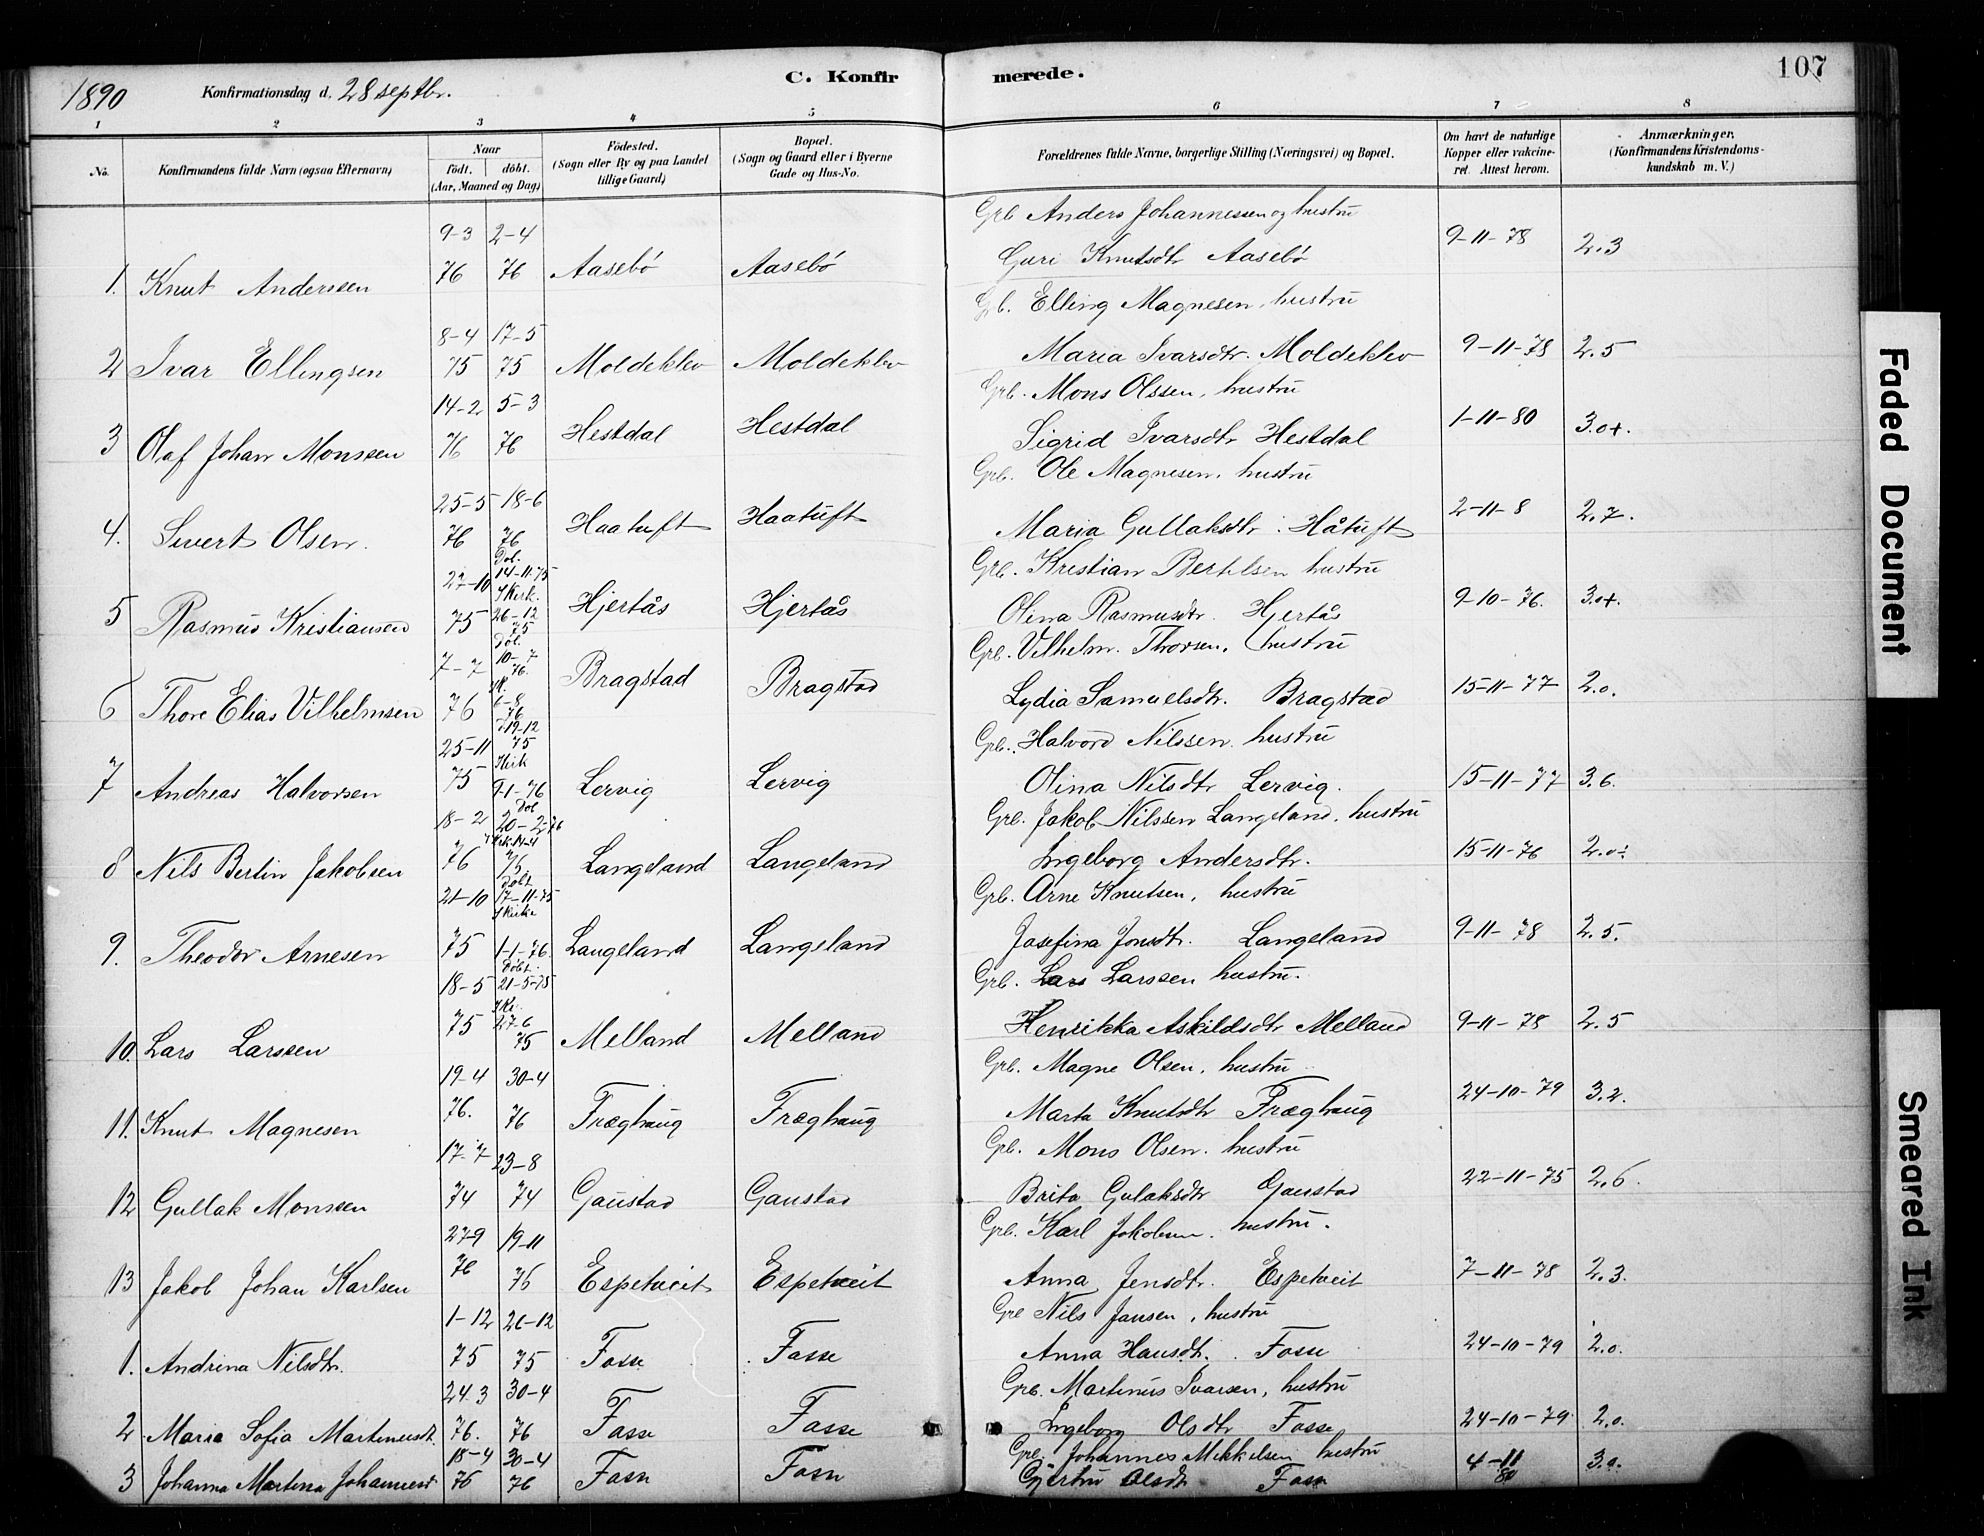 1890 Konfirmationsdag d. 28 septbr. C. Konfirmerede. 107
1 2 3 4 5 6 7 8
No. Konfirmandens fulde Navn (ogsaa Efternavn) Naar födt. döbt. (Aar, Maaned og Dag) Födested. (Sogn eller By og paa Landet tillige Gaard) Bopæl. (Sogn og Gaard eller i Byerne Gade og Hus-No. Forældrenes fulde Navne, borgerlige Stilling (Næringsvei) og Bopæl. Om havt de naturlige Kopper eller vakcineret. Attest herom. Anmærkninger. (Konfirmandens Kristendomskundskab m. V.)
Grb Anders Johannessen og hustru
9-3 2-4 9-11-78
1. Knut Anderssen 76 76 Aasebö Aasebö Guri Knutsdtr Aasebö 2.3
Grb. Elling Magnesen, hustru
8-4 17-5
2 Ivar Ellingsen 75 75 Moldeklev Moldeklev Maria Ivarsdtr. Moldeklev 9-11-78 2.5
Grb. Mons Olssen, hustru
14-2 5-3
3 Olaf Johan Monssen 76 76 Hestdal Hestdal Sigrid Ivarsdtr Hestdal 1-11-80 3.0+.
Grb. Ole Magnesen, hustru
25-5 18-6
4. Sivert Olsen. 76 76 Haatuft Haatuft Maria Gullaksdtr Håtuft 2-11-8 2.7.
Grb. Kristian Bertelsen hustru
27-10 Döb. 14-11-75
5 Rasmus Kristiansen 75 i Kirk. 26-12 75 Hjertås Hjertås Olina Rasmusdtr. Hjertås 9-10-76. 3.0+.
Grb. Vilhelm Thorsen, hustru
7-7 Döb. 10-7 76.
6 Thore Elias Vilhelmsen 76 6-8 76 Bragstad Bragstad Lydia Samuelsdtr. Bragstad 15-11-77 2.0.
Grb. Halvord Nilssen, hustru
25-11 19-12 75
7 Andreas Halvorsen 75 Kirk 76 Lervig Lervig Olina Nilsdtr Lervig. 15-11-77 3.6.
Grb. Jakob Nilssen Langeland, hustru
18-2 Döb 20-2-76
8 Nils Bertin Jakobsen 76 76 Langeland Langeland Ingeborg Andersdtr. 15-11-76 2.0
Grb. Arne Knutsen, hustru
21-10 Döbt 17-11-75 i Kirke
9. Theodor Arnesen 75 1-1-76. Langeland Langeland Josefina Jonsdtr. Langeland 9-11-78 2.5.
Grb. Lars Larssen hustru.
18-5 Döbt. 21-5-75
10. Lars Larssen 75 27-6 75 Melland Melland Henrikka Askildsdtr Melland 9-11-78 2.5
Grb. Magne Olsen, hustru
19-4 30-4
11. Knut Magnesen 76. 76 Fræghaug Fræghaug Marta Knutsdtr Fræghaug 24-10-79 3.2.
Grb. Mons Olsen, hustru
17-7 23-8
12 Gullak Monssen 74 74 Gaustad Gaustad Brita Gulaksdtr Gaustad 22-11-75 2.6.
Grb. Karl Jakobsen, hustru.
27-9 19-11
13 Jakob Johan Karlsen 76 76 Espetveit Espetveit Anna Jensdtr. Espetveit 7-11-78 2.3.
Grb Nils Jansen, hustru
1-12 26-12
1. Andrina Nilsdtr. 75 75 Fosse Fosse Anna Hansdtr. Fosse 24-10-79 2.0.
Grb. Martinus Ivarsen, hustru
24.3 30-4
2 Maria Sofia Martinusdt. 76. 76 Fosse Fosse Ingeborg Olsdtr Fosse 24-10-79 2.0.
Grb. Johannes Mikkelsen hustru
18-4 30-4
3 Johanna Martina Johannesdt 76 76 Fosse Fosse Gjertru Olsdtr Fosse 4-11 80 3.0.
Faded Document
Smeared Ink